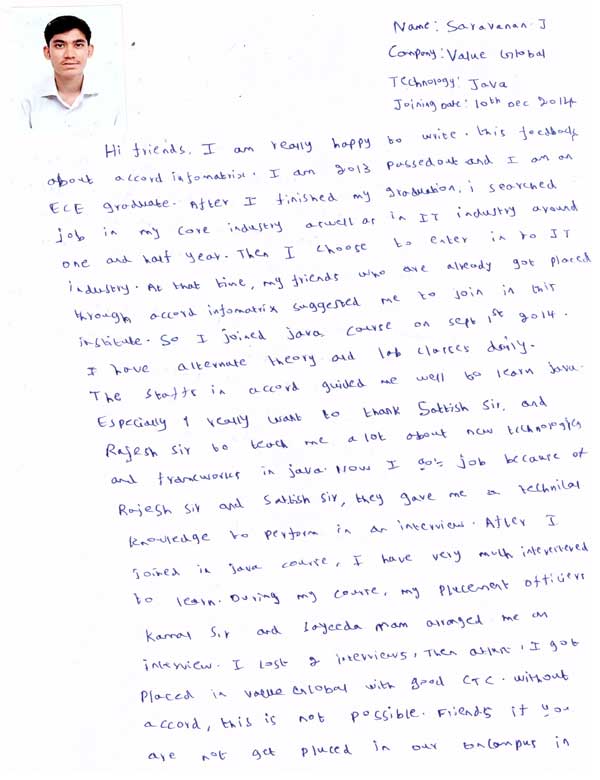 Name: Saravanan.J
Company: Value Global
Technology: Java
Joining Date: 10th Dec 2014
Hi friends, I am really happy to write this feedback
about accord infomatrix. I am 2013 passedout and I am an
ECE graduate. After I finished my graduation, i searched
job in my core industry aswell as in IT industry around
one and half year. Then I choose to enter in to IT
industry. At that time, my friends who are already got placed
through accord infomatrix suggested me to join in this
institute. So I joined java course on sept 1st 2014.
I have alternate theory and lab classes daily.
The staffs in accord guided me well to learn java.
Especially I really want to thank Sattish Sir, and
Rajesh sir to teach me a lot about new technologies
and frameworks in java. Now I got job because of
Rajesh sir and Sattish Sir, they gave me a technilal
knowledge to perform in an interview. After I
joined in java course, I have very much
to learn. During my course, my placement officers
Kamal Sir and Sayeeda mam arranged me an
interview. I lost 2 interviews, Then atlast, I got
placed in value Global with good CTC. without
accord, this is not possible. Friends if you
are not get placed in our oncampus in